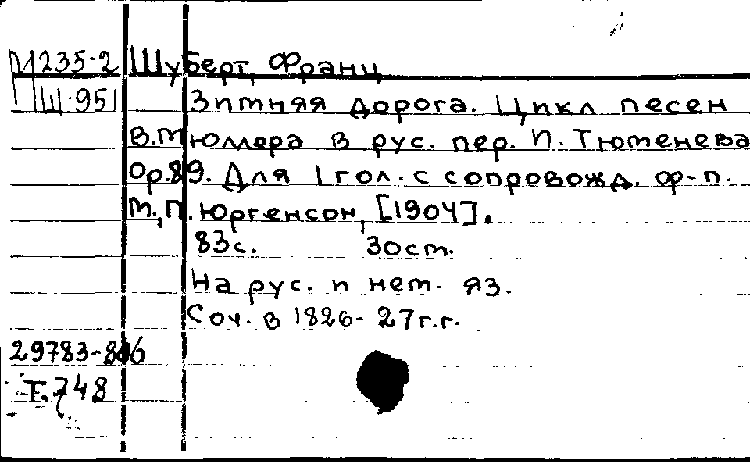 М235-2 Шуберт, Франц
Ш.951 Зимняя дорога. Цикл песен
В.Мюллера в рус. пер. И. Тюменева
Op.89. Для 1 гол. с сопровожд. ф-п.
М., П. Юргенсон, [1904].
83с. 30 ст.
На рус. и нем. яз.
Соч. в 1826-27 г.г.
29783-86
Т.748